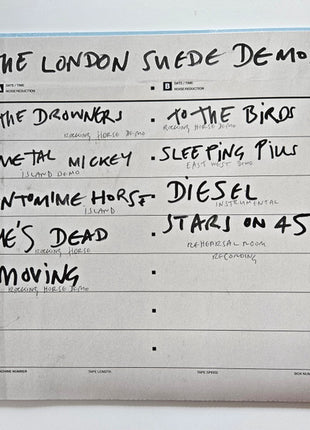 THE LONDON SUEDE DEMO
A DATE / TIME
NOISE REDUCTION
B DATE / TIME
NOISE REDUCTION
THE DROWNERS
ROCKING HORSE DEMO
METAL MICKEY
ISLAND DEMO
NTOMIME HORSE
ISLAND
E'S DEAD
ROCKING HORSE
MOVING
ROCKING HORSE DEMO
TO THE BIRDS
ROCKING HORSE DEMO
SLEEPING PILLS
EAST WEST DEMO
DIESEL
INSTRUMENTAL
STARS ON 45
REHEARSAL ROOM
RECORDING
MACHINE NUMBER
TAPE LENGTH
TAPE SPEED